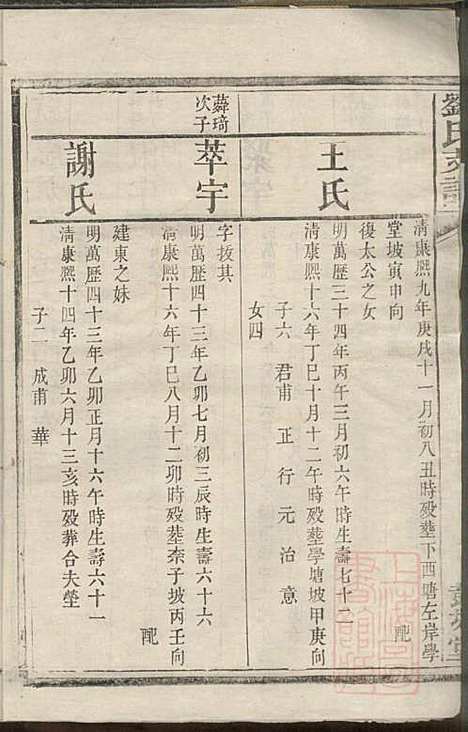 劉氏支譜
清康熙九年庚戌十一月初八丑時殁塟下西塘左岸學
堂坡寅申向
配
王氏
復太公之女
明萬歷三十四年丙午三月初六午時生壽七十二
清康熙十六年丁巳十月十二午時殁塟學塘坡甲庚向
子六 君甫 正 行 元 治 意
女四
薜琦次子
萃宇
字拔其
明萬歷四十三年乙卯七月初三辰時生壽六十六
清康熙十六年丁巳八月十二卯時殁塟柰子坡丙壬向
配
謝氏
建東之妹
明萬歷四十三年乙卯正月十六午時生壽六十一
清康熙十四年乙卯六月十三亥時殁葬合夫塋
子二 成甫 華